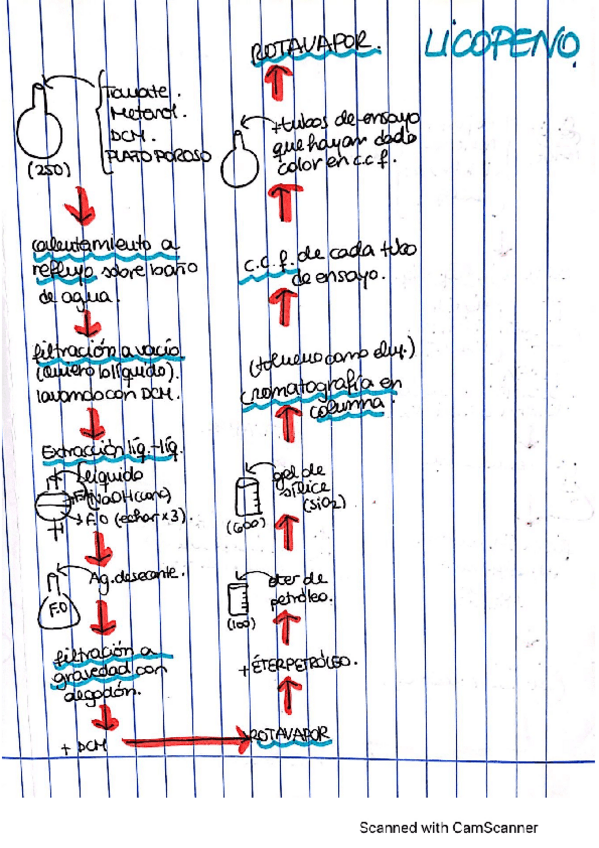 LICOPENO.
Tomate.
Metanol.
DCM.
PLATO POROSO
(250)
calentamiento a
reflujo sobre baño
de agua.
filtración a vacío
(quiero lo líquido).
lavando con DCM.
Extracción líq.-líq.
Líquido
NaOH (conc)
F.O (echar x3).
Ag. desecante.
F.O
filtración a
gravedad con
algodón.
+ DCM
ROTAVAPOR
+ ÉTER PETRÓLEO.
éter de
petróleo.
(100)
gel de
sílice
(SiO2)
(600)
(tolueno como eluy.)
cromatografía en
columna.
c.c.f. de cada tubo
de ensayo.
+ tubos de ensayo
que hayan dado
color en c.c.f.
ROTAVAPOR.
Scanned with CamScanner